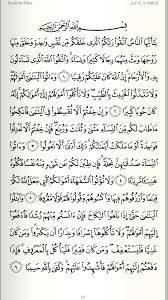 Surat An-Nisa
بِسْمِ ٱللَّهِ ٱلرَّحْمَٰنِ ٱلرَّحِيمِ
يَٰٓأَيُّهَا ٱلنَّاسُ ٱتَّقُوا۟ رَبَّكُمُ ٱلَّذِى خَلَقَكُم مِّن نَّفْسٍ وَٰحِدَةٍ وَخَلَقَ مِنْهَا
زَوْجَهَا وَبَثَّ مِنْهُمَا رِجَالًا كَثِيرًا وَنِسَآءً ۚ وَٱتَّقُوا۟ ٱللَّهَ ٱلَّذِى تَسَآءَلُونَ
بِهِۦ وَٱلْأَرْحَامَ ۚ إِنَّ ٱللَّهَ كَانَ عَلَيْكُمْ رَقِيبًا ١ وَءَاتُوا۟ ٱلْيَتَٰمَىٰٓ
أَمْوَٰلَهُمْ ۖ وَلَا تَتَبَدَّلُوا۟ ٱلْخَبِيثَ بِٱلطَّيِّبِ ۖ وَلَا تَأْكُلُوٓا۟ أَمْوَٰلَهُمْ إِلَىٰٓ أَمْوَٰلِكُمْ ۚ إِنَّهُۥ
كَانَ حُوبًا كَبِيرًا ٢ وَإِنْ خِفْتُمْ أَلَّا تُقْسِطُوا۟ فِى ٱلْيَتَٰمَىٰ فَٱنكِحُوا۟
مَا طَابَ لَكُم مِّنَ ٱلنِّسَآءِ مَثْنَىٰ وَثُلَٰثَ وَرُبَٰعَ ۖ فَإِنْ خِفْتُمْ أَلَّا تَعْدِلُوا۟
فَوَٰحِدَةً أَوْ مَا مَلَكَتْ أَيْمَٰنُكُمْ ۚ ذَٰلِكَ أَدْنَىٰٓ أَلَّا تَعُولُوا۟ ٣ وَءَاتُوا۟
ٱلنِّسَآءَ صَدُقَٰتِهِنَّ نِحْلَةً ۚ فَإِن طِبْنَ لَكُمْ عَن شَىْءٍ مِّنْهُ نَفْسًا فَكُلُوهُ
هَنِيٓـًٔا مَّرِيٓـًٔا ٤ وَلَا تُؤْتُوا۟ ٱلسُّفَهَآءَ أَمْوَٰلَكُمُ ٱلَّتِى جَعَلَ ٱللَّهُ لَكُمْ
قِيَٰمًا وَٱرْزُقُوهُمْ فِيهَا وَٱكْسُوهُمْ وَقُولُوا۟ لَهُمْ قَوْلًا مَّعْرُوفًا ٥
وَٱبْتَلُوا۟ ٱلْيَتَٰمَىٰ حَتَّىٰٓ إِذَا بَلَغُوا۟ ٱلنِّكَاحَ فَإِنْ ءَانَسْتُم مِّنْهُمْ رُشْدًا
فَٱدْفَعُوٓا۟ إِلَيْهِمْ أَمْوَٰلَهُمْ ۖ وَلَا تَأْكُلُوهَآ إِسْرَافًا وَبِدَارًا أَن يَكْبَرُوا۟ ۚ
وَمَن كَانَ غَنِيًّا فَلْيَسْتَعْفِفْ ۖ وَمَن كَانَ فَقِيرًا فَلْيَأْكُلْ بِٱلْمَعْرُوفِ ۚ فَإِذَا
دَفَعْتُمْ إِلَيْهِمْ أَمْوَٰلَهُمْ فَأَشْهِدُوا۟ عَلَيْهِمْ ۚ وَكَفَىٰ بِٱللَّهِ حَسِيبًا ٦
77